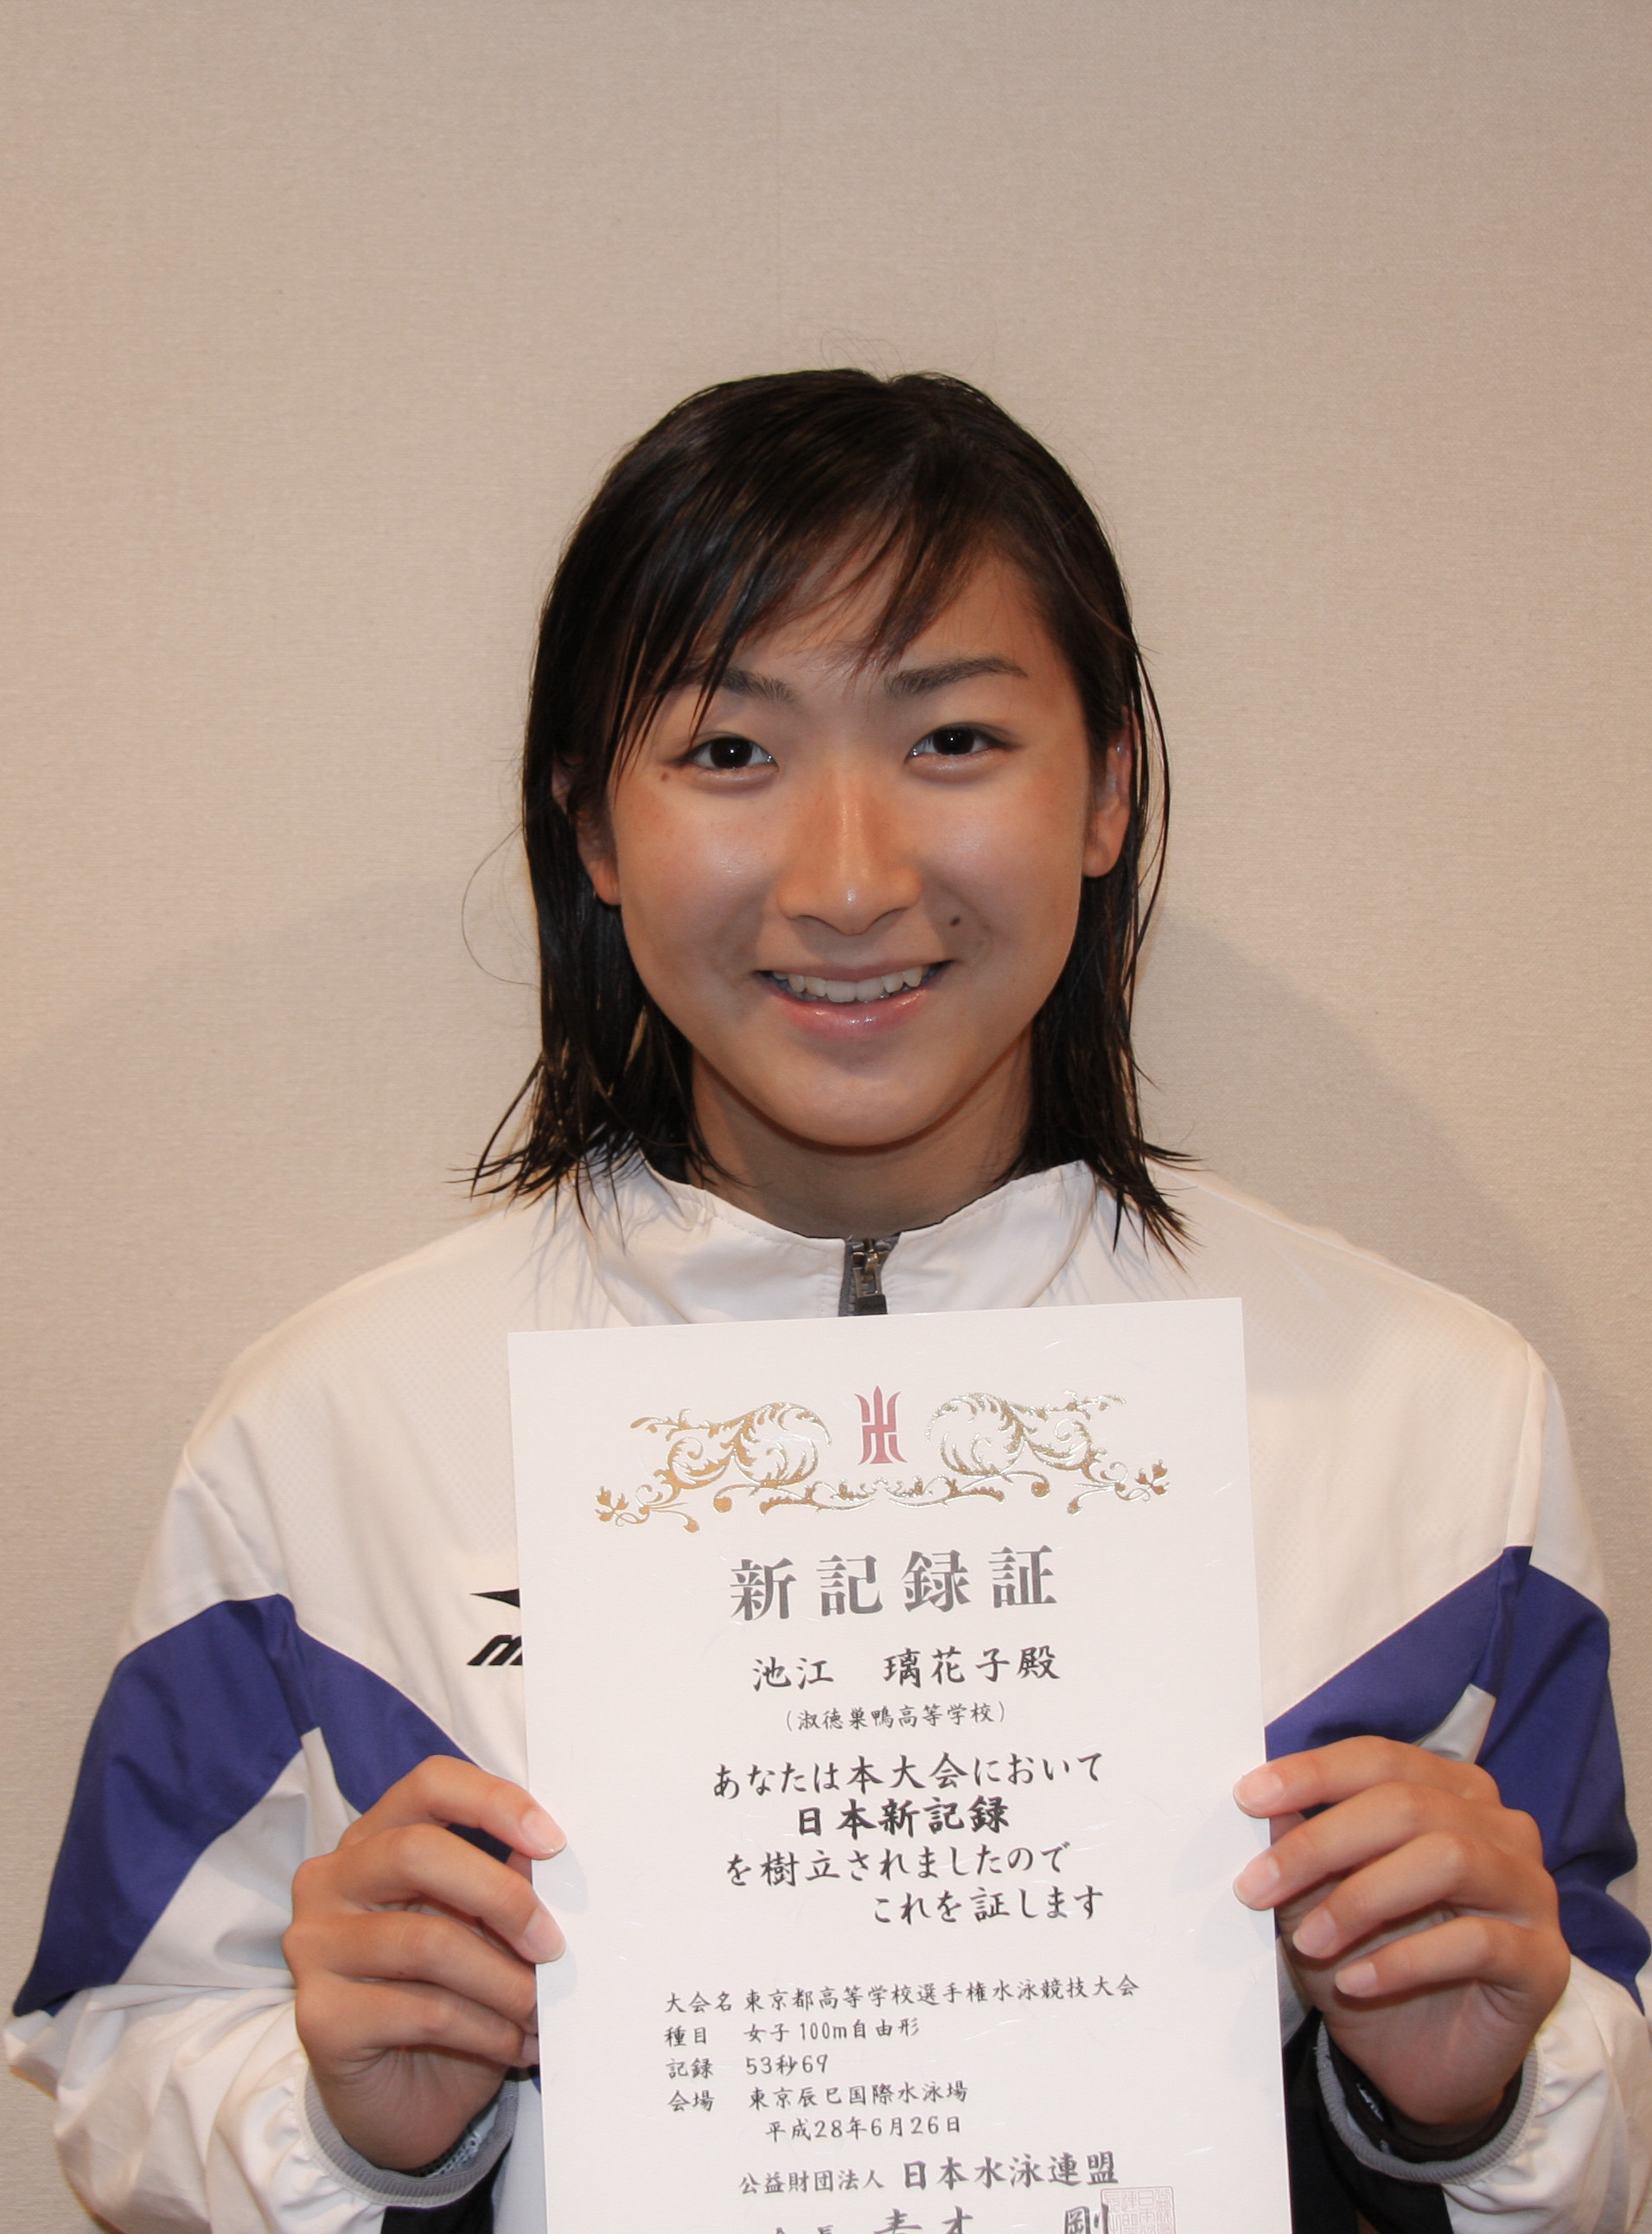 新記録証
池江 璃花子殿
（淑徳巣鴨高等学校）
あなたは本大会において
日本新記録
を樹立されましたので
これを証します
大会名 東京都高等学校選手権水泳競技大会
種目 女子100m自由形
記録 53秒69
会場 東京辰巳国際水泳場
平成28年6月26日
公益財団法人 日本水泳連盟